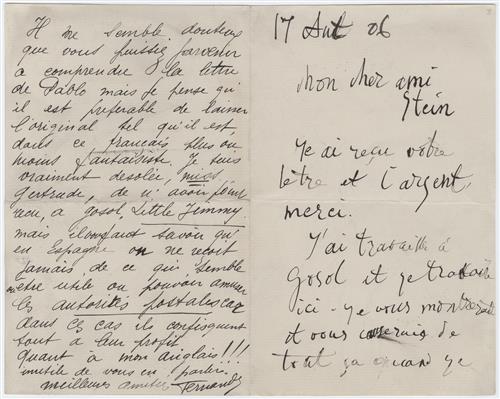 Il me semble douteux
que vous puissiez parvenir
a comprendre la lettre
de Pablo mais je pense qu'
il est preferable de laisser
l'original tel qu'il est,
dans ce français plus ou
moins fantaisiste. Je suis
vraiment desolée, miss
Gertrude, de n'avoir pas
recu, a Gosol, Little Jimmy.
mais il faut savoir qu'
en Espagne on ne recoit
jamais, de ce qui semble
être utile ou pouvant amuser
les autorités postales car
dans ces cas ils confisquent
tout a leur profit
quant à mon anglais!!!
inutile de vous en parler.
meilleures amitiés Fernande
17 Aut 06
Mon cher ami
Stein
Je ai reçu votre
letre et l'argent,
merci.
J'ai travaillé à
Gosol et je travaille
ici - je vous montrerai
et vous de
tout ça quand je